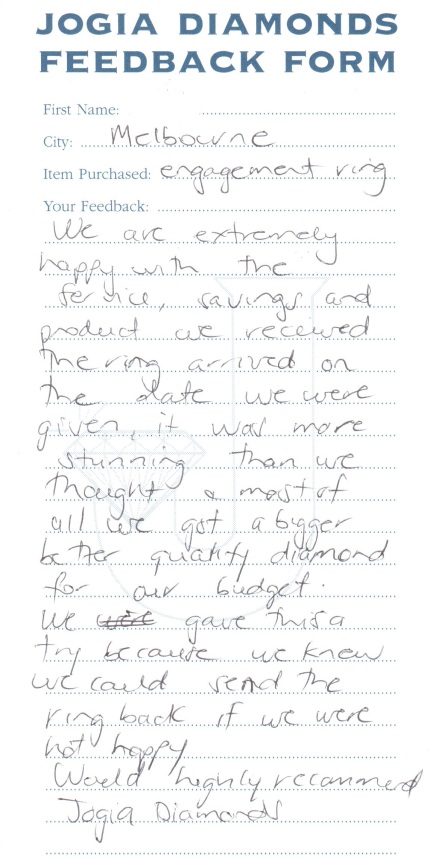 JOGIA DIAMONDS
FEEDBACK FORM
First Name:
City: Melbourne
Item Purchased: engagement ring
Your Feedback:
We are extremely
happy with the
service, savings and
product we received
The ring arrived on
the date we were
given, it was more
stunning than we
thought & most of
all we got a bigger
better quality diamond
for our budget.
We were gave this a
try because we knew
we could send the
ring back if we were
not happy
Would highly recommend
Jogia Diamonds